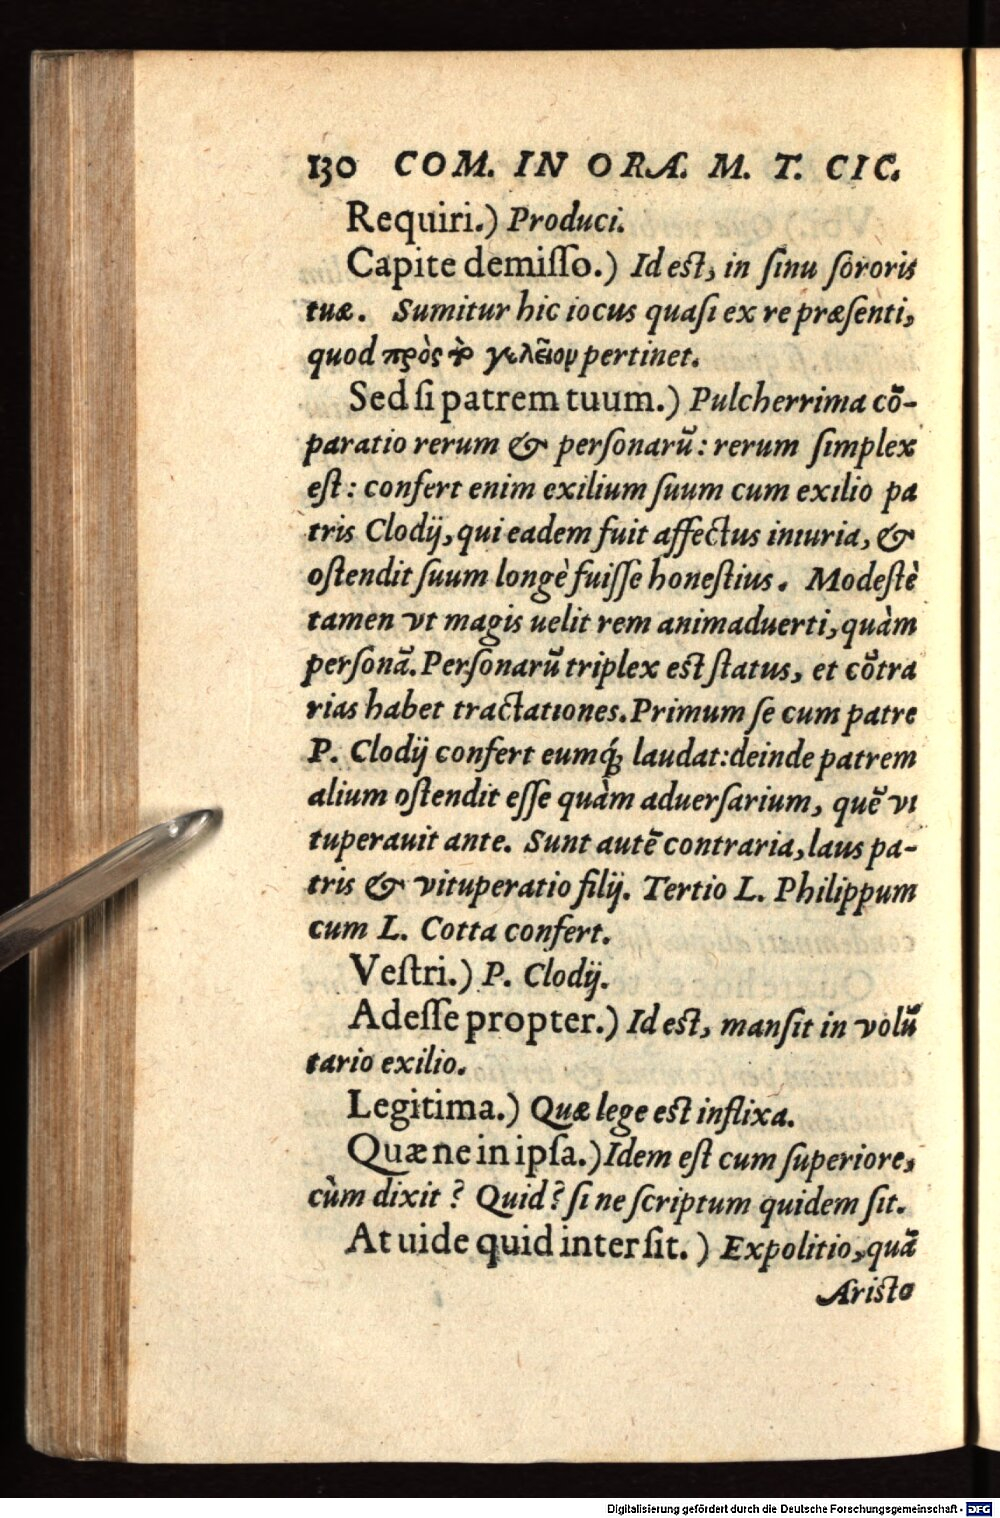 130 COM. IN ORÆ. M. T. CIC.
Requiri.) Produci.
Capite demiſſo.) Id eſt, in ſinu ſororis
tuæ. Sumitur hic iocus quaſi ex re præſenti,
quod πρὸς pertinet.
Sed ſi patrem tuum.) Pulcherrima cō-
paratio rerum & perſonarū: rerum ſimplex
eſt: confert enim exilium ſuum cum exilio pa
tris Clodij, qui eadem fuit affectus iniuria, &
oſtendit ſuum longè fuiſſe honeſtius. Modeſtè
tamen vt magis uelit rem animaduerti, quàm
perſonā. Perſonarū triplex eſt ſtatus, et cōtra
rias habet tractationes. Primum ſe cum patre
P. Clodij confert eumq́; laudat: deinde patrem
alium oſtendit eſſe quàm aduerſarium, quē vi
tuperauit ante. Sunt autē contraria, laus pa-
tris & vituperatio filij. Tertio L. Philippum
cum L. Cotta confert.
Veſtri.) P. Clodij.
Adeſſe propter.) Id eſt, manſit in volū
tario exilio.
Legitima.) Quæ lege eſt inflixa.
Quæ ne in ipſa.) Idem eſt cum ſuperiore,
cùm dixit? Quid? ſi ne ſcriptum quidem ſit.
At uide quid interſit.) Expolitio, quā
Ariſto
Digitalisierung gefördert durch die Deutsche Forschungsgemeinschaft - DFG